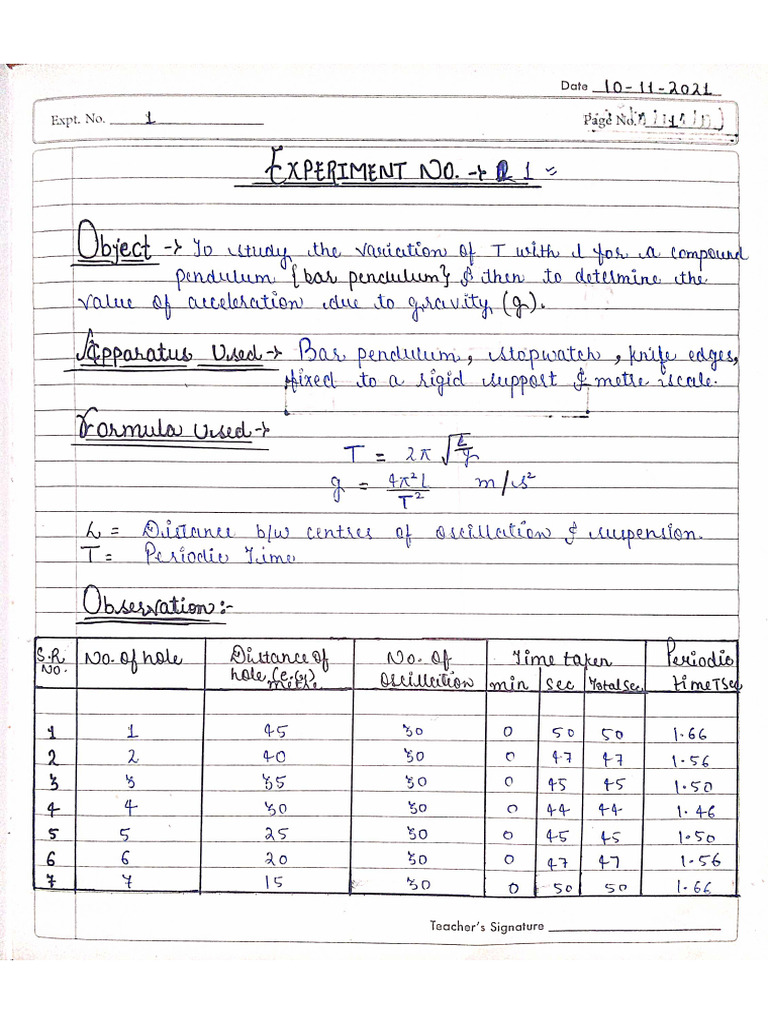 Date 10-11-2021
Expt. No. 1
Page No. 1
EXPERIMENT NO. → 1
Object → To study the variation of T with l for a compound
pendulum {bar pendulum} & then to determine the
value of acceleration due to gravity (g).
Apparatus Used → Bar pendulum, stopwatch, knife edges,
fixed to a rigid support & metre scale.
Formula Used →
T = 2π √L/g
g = 4π²L/T² m/s²
L = Distance b/w centres of oscillation & suspension.
T = Periodic Time
Observation :-
S.R NO. No. of hole Distance of hole (C.G) metre No. of oscillation Time taken min sec Total sec Periodic time T sec
1 1 45 30 0 50 50 1.66
2 2 40 30 0 47 47 1.56
3 3 35 30 0 45 45 1.50
4 4 30 30 0 44 44 1.46
5 5 25 30 0 45 45 1.50
6 6 20 30 0 47 47 1.56
7 7 15 30 0 50 50 1.66
Teacher's Signature